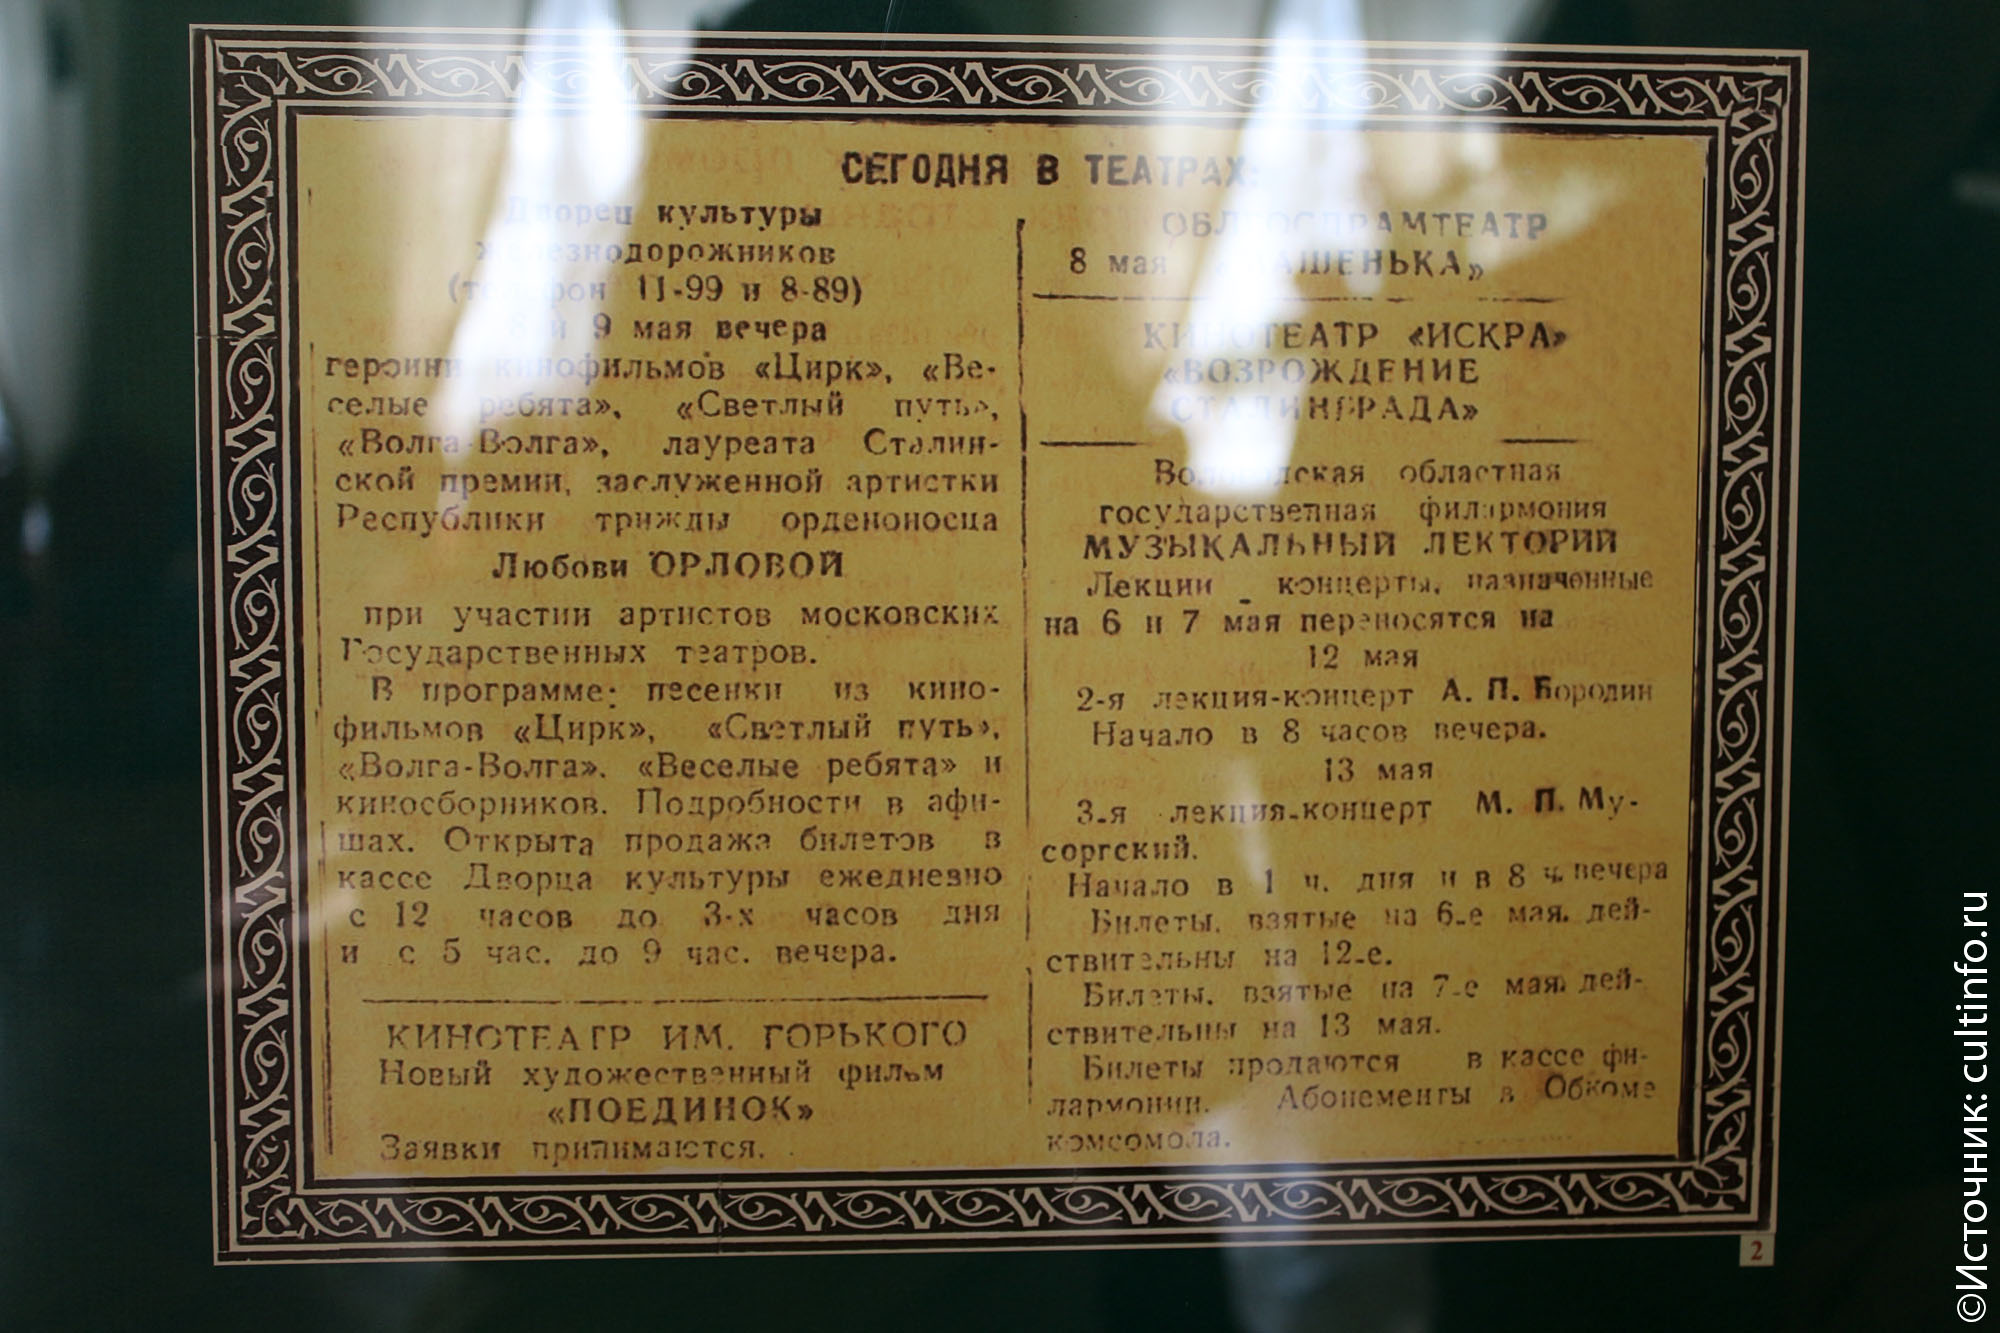 СЕГОДНЯ В ТЕАТРАХ:
Дворец культуры
железнодорожников
(телефон 11-99 и 8-89)
8 и 9 мая вечера
героини кинофильмов «Цирк», «Ве-
селые ребята», «Светлый путь»,
«Волга-Волга», лауреата Сталин-
ской премии, заслуженной артистки
Республики трижды орденоносца
Любови ОРЛОВОЙ
при участии артистов московских
Государственных театров.
В программе: песенки из кино-
фильмов «Цирк», «Светлый путь»,
«Волга-Волга». «Веселые ребята» и
киносборников. Подробности в афи-
шах. Открыта продажа билетов в
кассе Дворца культуры ежедневно
с 12 часов до 3-х часов дня
и с 5 час. до 9 час. вечера.
КИНОТЕАТР ИМ. ГОРЬКОГО
Новый художественный фильм
«ПОЕДИНОК»
Заявки принимаются.
ОБЛГОСДРАМТЕАТР
8 мая «МАШЕНЬКА»
КИНОТЕАТР «ИСКРА»
«ВОЗРОЖДЕНИЕ
СТАЛИНГРАДА»
Вологодская областная
государственная филармония
МУЗЫКАЛЬНЫЙ ЛЕКТОРИЙ
Лекции - концерты, назначенные
на 6 и 7 мая переносятся на
12 мая
2-я лекция-концерт А. П. Бородин
Начало в 8 часов вечера.
13 мая
3-я лекция-концерт М. П. Му-
соргский.
Начало в 1 ч. дня и в 8 ч. вечера
Билеты, взятые на 6-е мая, дей-
ствительны на 12-е.
Билеты, взятые на 7-е мая, дей-
ствительны на 13 мая.
Билеты продаются в кассе фи-
лармонии. Абонементы в Обкоме
комсомола.
2
©Источник: cultinfo.ru